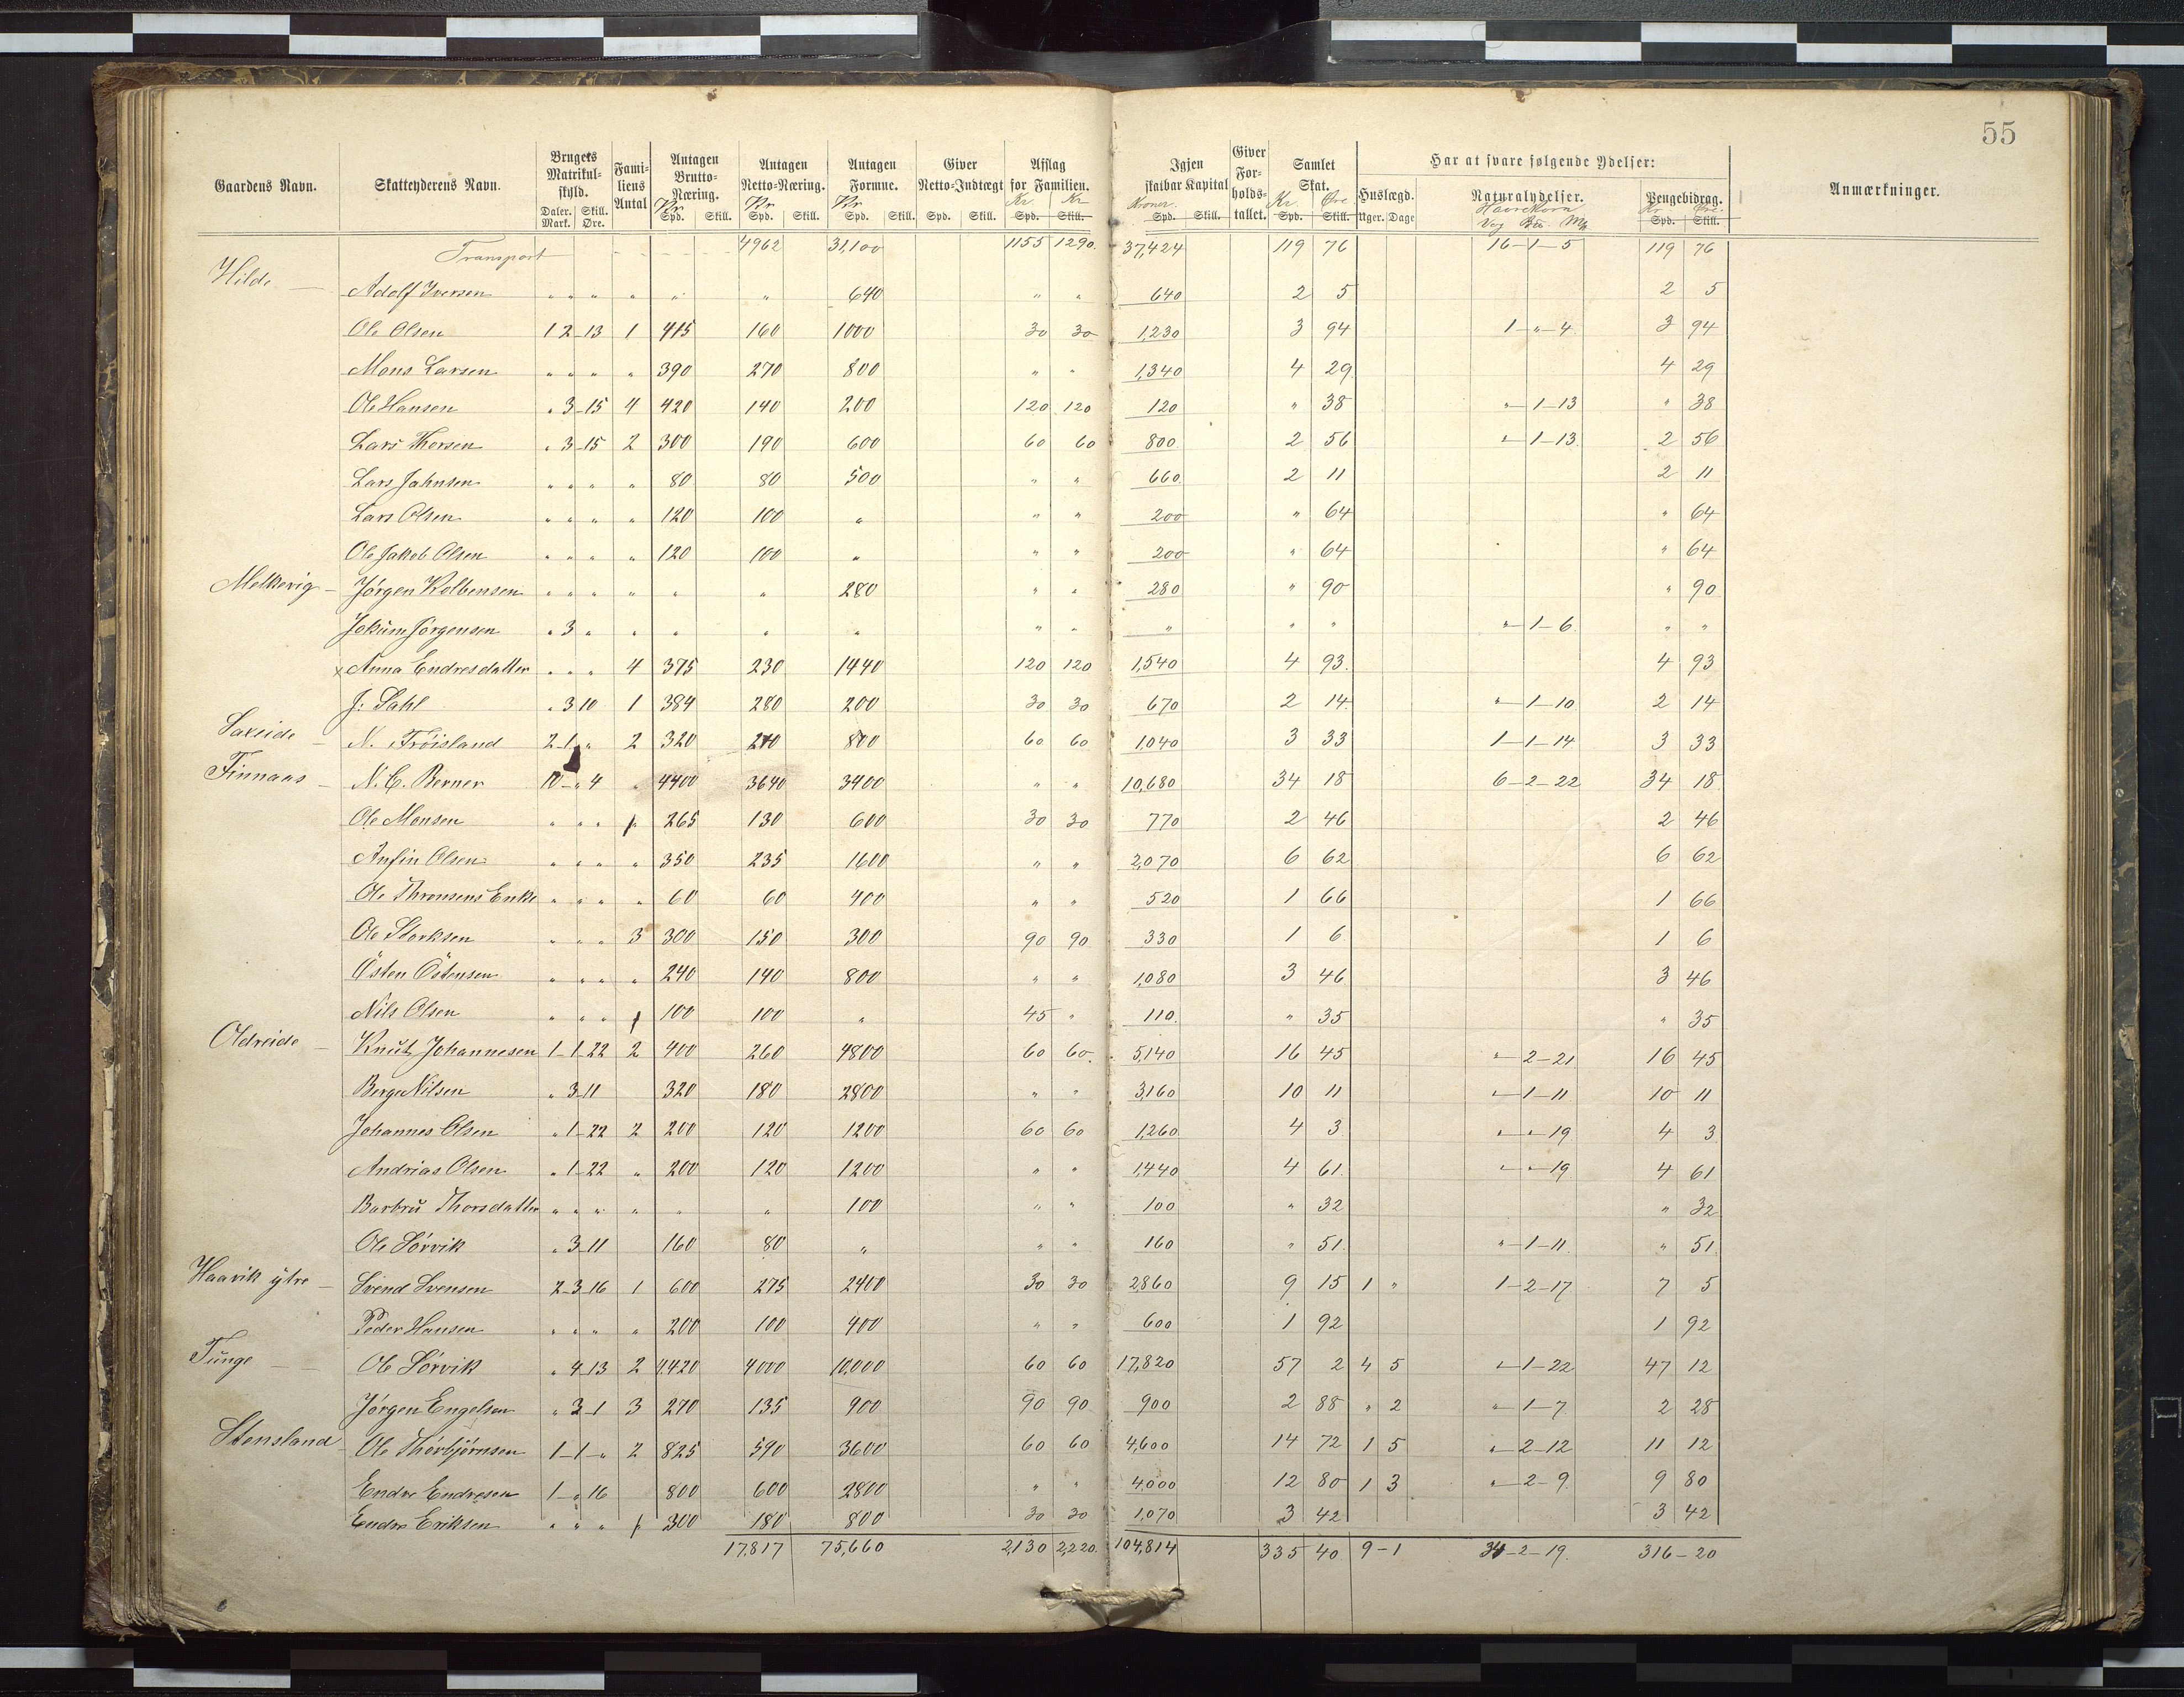 55
Gaardens Navn. Skatteyderens Navn. Brugets Matrikul-skyld. Fami-liens Antal Antagen Brutto-Næring. Antagen Netto-Næring. Antagen Formue. Giver Netto-Indtægt Afslag for Familien. Igjen skatbar Kapital Giver For-holds-tallet. Samlet Skat. Har at svare følgende Ydelser: Anmærkninger.
Huslægd. Naturalydelser. Pengebidrag.
Daler. Skill. Kr Kr Kr Kr Kr Kroner Kr Øre Havrekorn Kr Øre
Mark. Øre. Spd. Skill. Spd. Skill. Spd. Skill. Spd. Skill. Spd. Skill. Spd. Skill. Spd. Skill. Uger. Dage Vog Mk Spd. Skill.
Transport 4962 31,100 1155 1290. 37,424 119 76 16-1-5 119 76
Hilde — Adolf Iversen " " " " " " 640 " " 640 2 5 2 5
Ole Olsen 1 2-13 1 415 160 1000 30 30 1,230 3 94 1-"-4 3 94
Mons Larsen " " " " 390 270 800 " " 1,340 4 29 4 29
Ole Hansen " 3-15 4 420 140 200 120 120 120 " 38 "-1-13 " 38
Lars Thorsen " 3-15 2 300 190 600 60 60 800 2 56 "-1-13 2 56
Lars Jahnsen " " " " 80 80 500 " " 660 2 11 2 11
Lars Olsen " " " " 120 100 " " " 200 " 64 " 64
Ole Jakob Olsen " " " " 120 100 " " " 200 " 64 " 64
Melkevig — Jörgen Kolbensen " " " " " " 280 " " 280 " 90 " 90
Jokum Jörgensen " 3 " " " " " " " " " " "-1-6 " "
x Anna Endresdatter " " " 4 375 230 1440 120 120 1,540 4 93 4 93
J: Dahl " 3 10 1 384 280 200 30 30 670 2 14 "-1-10 2 14
Saxeide — N. Tröisland 2-1 " 2 320 240 800 60 60 1,040 3 33 1-1-14 3 33
Finnaas — N. C. Berner 10-"4 " 4400 3640 3400 " " 10,680 34 18 6-2-22 34 18
Ole Monsen " " " 1 265 130 600 30 30 770 2 46 2 46
Anfin Olsen " " " " 350 235 1600 " " 2,070 6 62 6 62
Ole Thronsens Enke " " " " 60 60 400 " " 520 1 66 1 66
Ole Storksen " " " 3 300 150 300 90 90 330 1 6 1 6
Östen Östensen " " " " 240 140 800 " " 1,080 3 46 3 46
Nils Olsen " " " 1 100 100 " 45 " 110 " 35 " 35
Oldreide — Knut Johannesen 1-1 22 2 400 260 4800 60 60 5,140 16 45 "-2-21 16 45
Berge Nilsen " 3-11 320 180 2800 " " 3,160 10 11 "-1-11 10 11
Johannes Olsen " 1-22 2 200 120 1200 60 60 1,260 4 3 "-"-19 4 3
Andrias Olsen " 1-22 " 200 120 1200 " " 1,440 4 61 "-"-19 4 61
Barbru Thorsdatter " " " " " " 100 " " 100 " 32 " 32
Ole Sörvik " 3-11 160 80 " " " 160 " 51 "-1-11 " 51
Haavik ytre — Svend Svensen 2-3 16 1 600 275 2400 30 30 2,860 9 15 1 " 1-2-17 7 5
Peder Hansen " " " " 200 100 400 " " 600 1 92 1 92
Tunge — Ole Sörvik " 4-13 2 4,420 4000 10,000 60 60 17,820 57 2 4 5 "-1-22 47 12
Jörgen Engelsen " 3-1 3 270 135 900 90 90 900 2 88 " 2 "-1-7 2 28
Stensland — Ole Thorbjörnsen 1-1-" 2 825 590 3600 60 60 4,600 14 72 1 5 "-2-12 11 12
Endre Endresen 1-"16 800 600 2800 " " 4,000 12 80 1 3 "-2-9 9 80
Endre Eriksen " " " 1 300 180 800 30 30 1,070 3 42 3 42
17,817 75,660 2,130 2,220. 104,814 335 40 9-1 34-2-19. 316-20